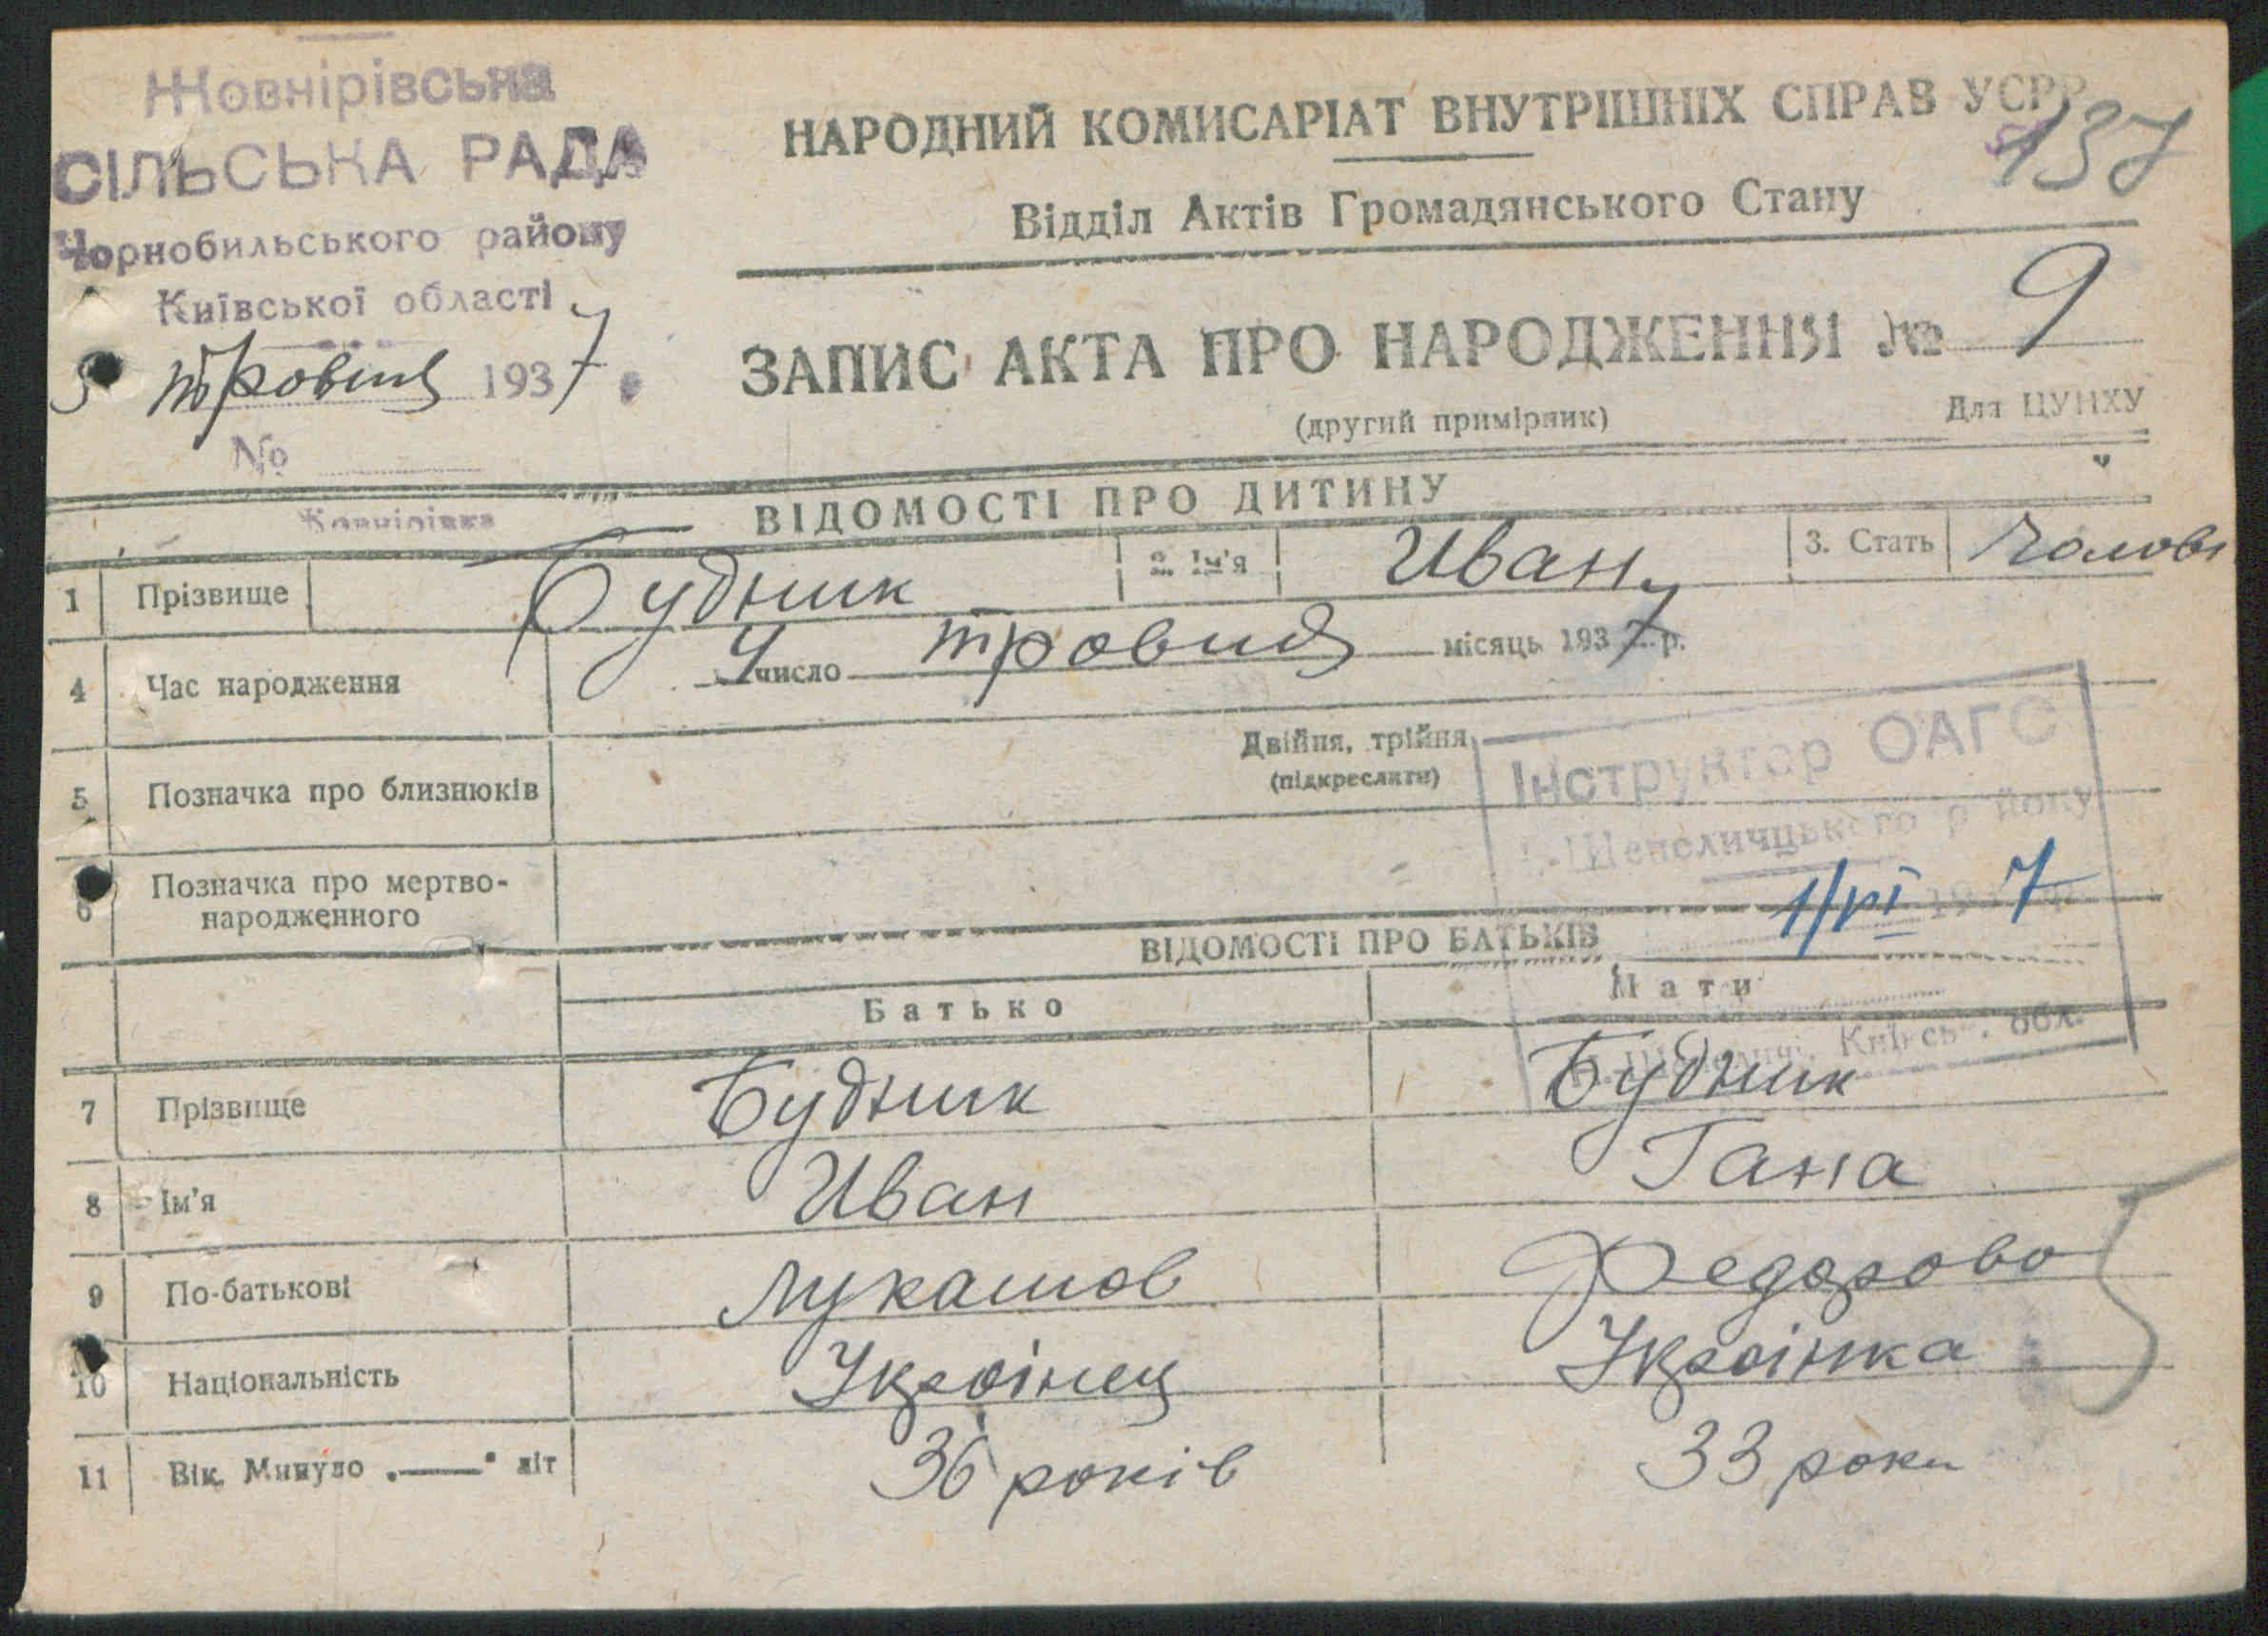 Жовнірівська
СІЛЬСЬКА РАДА
Чорнобильського району
Київської області
5 травня 1937
№
НАРОДНИЙ КОМИСАРІАТ ВНУТРІШНІХ СПРАВ УСРР
137
Відділ Актів Громадянського Стану
ЗАПИС АКТА ПРО НАРОДЖЕННЯ № 9
(другий примірник)
Для ЦУНХУ
Жовнірівка
ВІДОМОСТІ ПРО ДИТИНУ
1 Прізвище Будник 2. Ім'я Иван 3. Стать Чолові
4 Час народження 4 число травня місяць 1937 р.
5 Позначка про близнюків Двійня, трійня
(підкреслити)
Інструктор ОАГС
Шепеличцького району
1/VI 1937
6 Позначка про мертво-
народженного
ВІДОМОСТІ ПРО БАТЬКІВ
Батько Мати
Київськ. обл.
7 Прізвище Будник Будник
8 Ім'я Иван Гана
9 По-батькові Лукашов Федорова
10 Національність Українец Українка
11 Вік. Минуло „—“ літ 36 років 33 роки